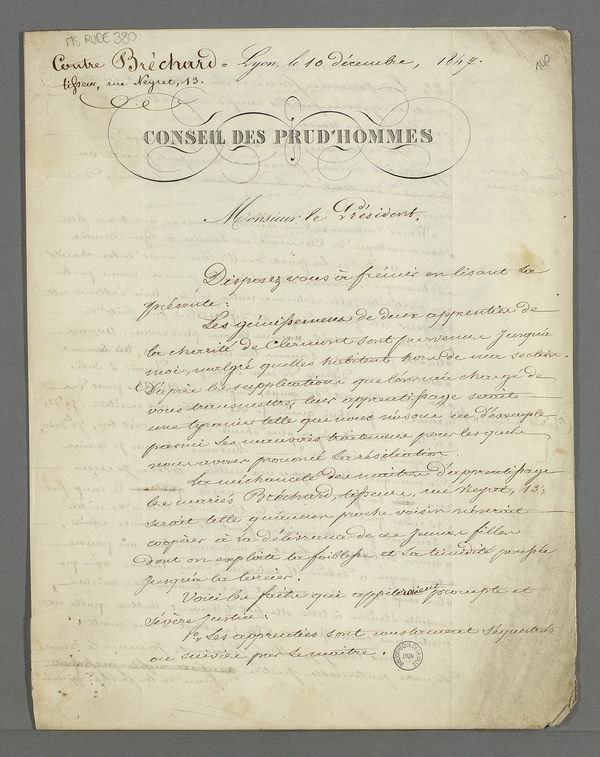 Ms RUDE 380
140
Contre Bréchard = Lyon, le 10 décembre, 1847.
tisseur, rue Neyret, 13.
CONSEIL DES PRUD'HOMMES
Monsieur le Président,
Disposez vous à frémir en lisant la
présente:
Les gémissemens de deux apprenties de
la charité de Clermont sont parvenus jusqu'à
moi, malgré qu'elles habitent hors de ma section.
D'après les supplications que l'on m'a chargé de
vous transmettre, leur apprentissage serait
une tyrannie telle que nous n'avons vu d'exemple
parmi les mauvais traitemens pour lesquels
nous avons prononcé la résiliation.
La méchanceté des maîtres d'apprentissage
les mariés Bréchard, tisseurs, rue Neyret, 13,
serait telle qu'aucun proche voisin n'oserait
coopérer à la délivrance de ces jeunes filles
dont on exploite la faiblesse et la timidité poussée
jusqu'à la terreur.
Voici les faits qui appelleraient prompte et
sévère justice:
1º Les apprenties sont constamment séquestrées
ou suivies par le maître.
LYON